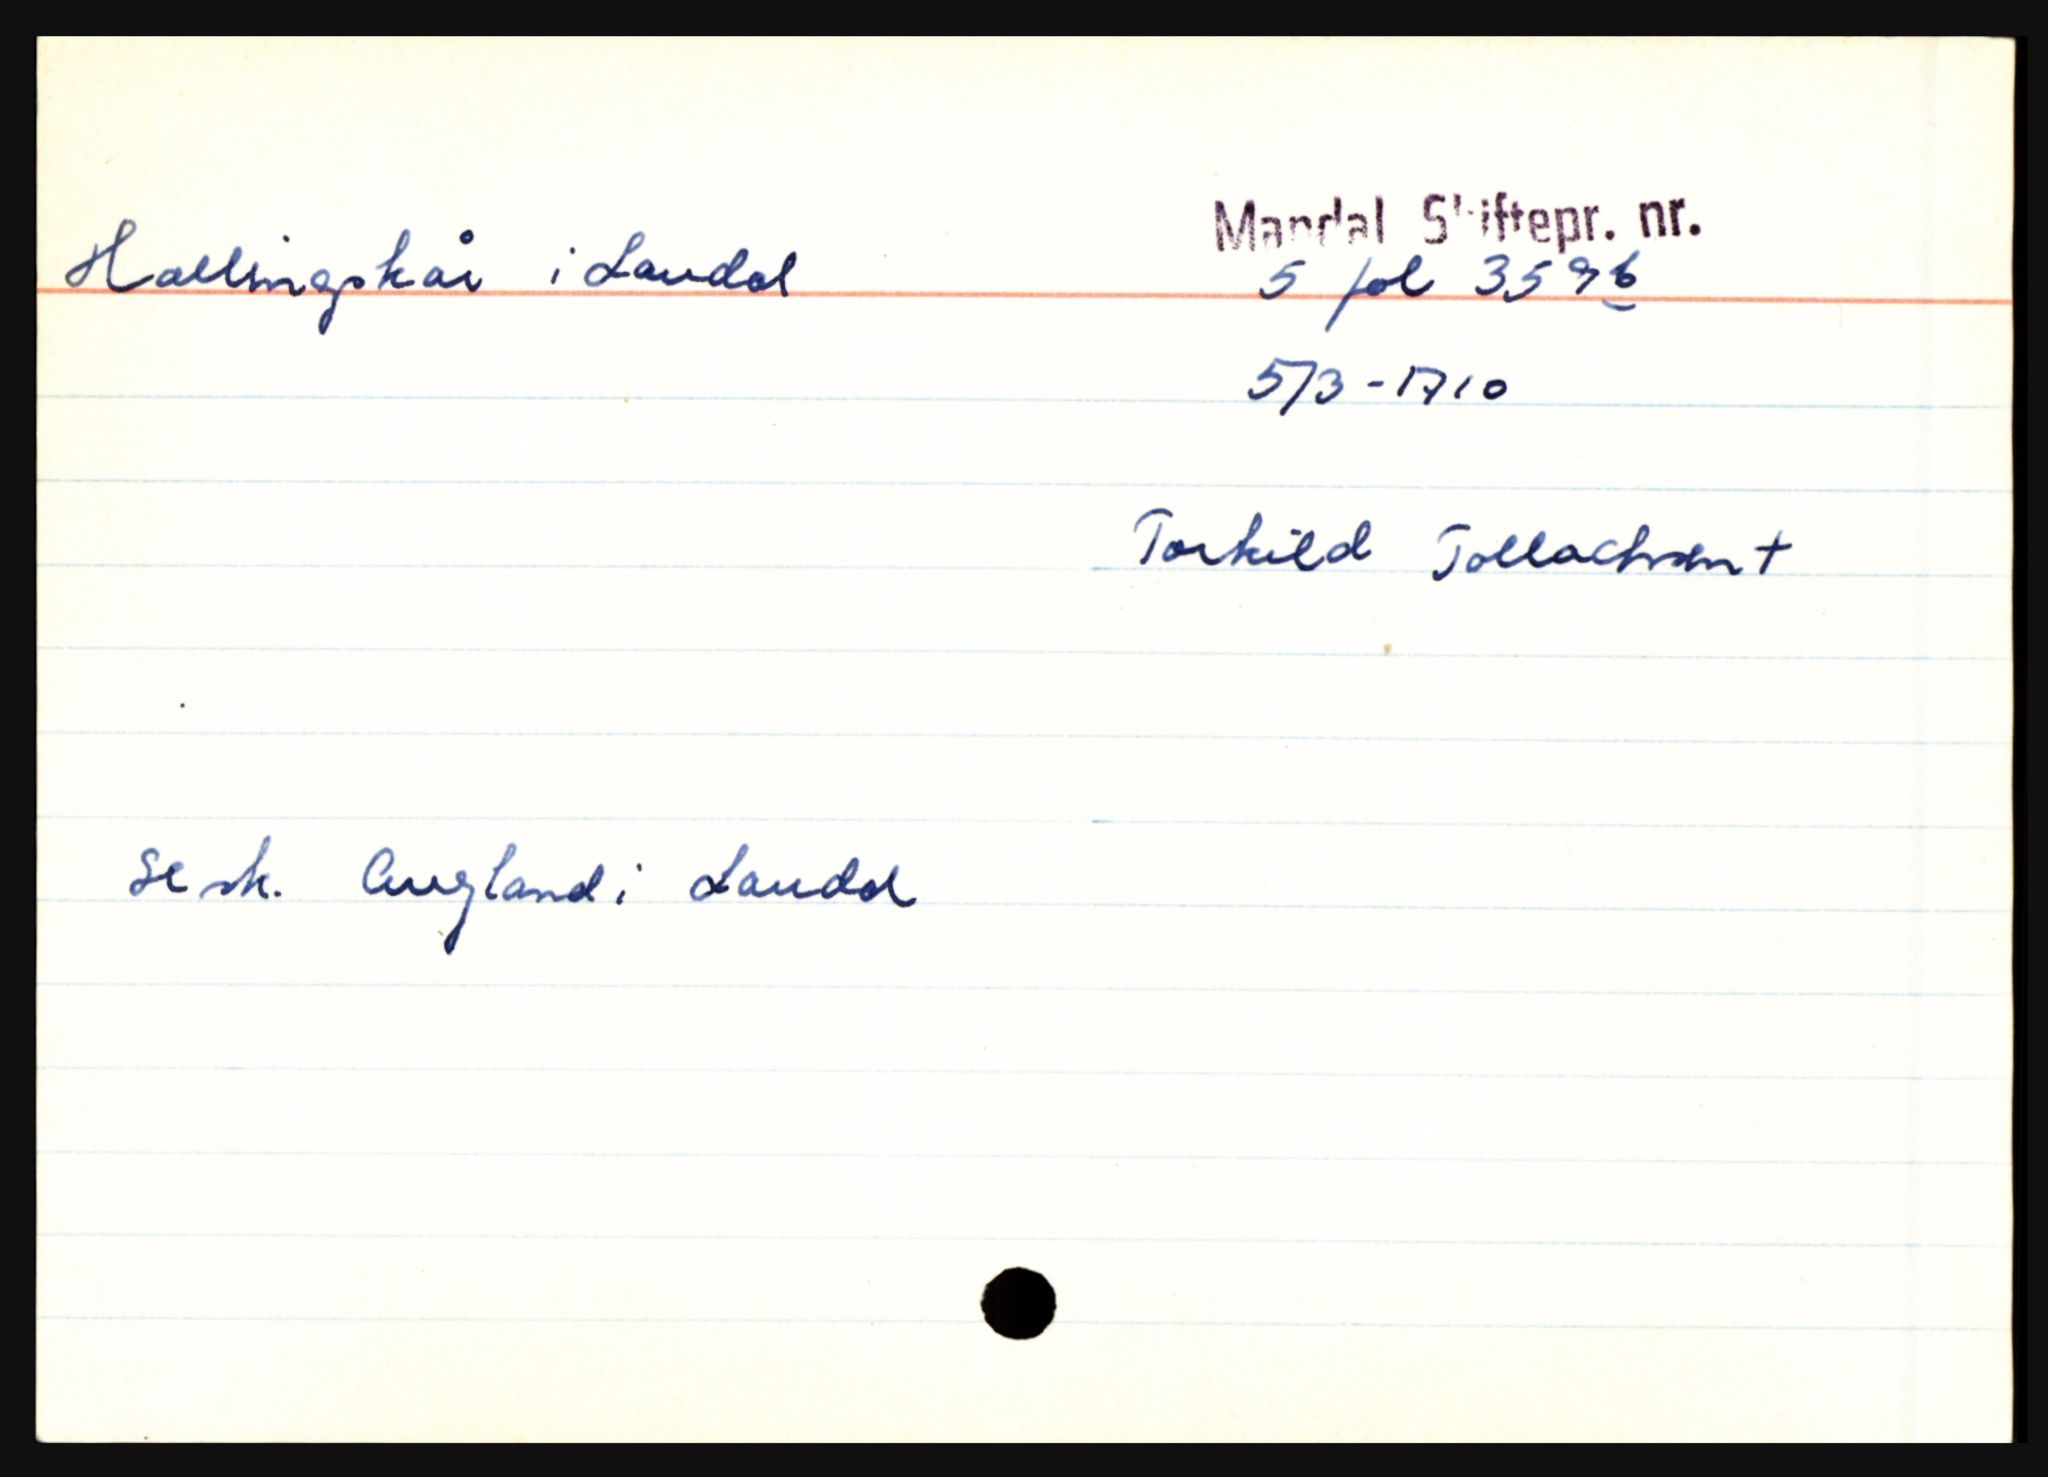 Mandal Skiftepr. nr.
Hallingskår i Laudal 5 fol 359b
5/3-1710
Torkild Tollachsen +
se sk. Augland i Laudal